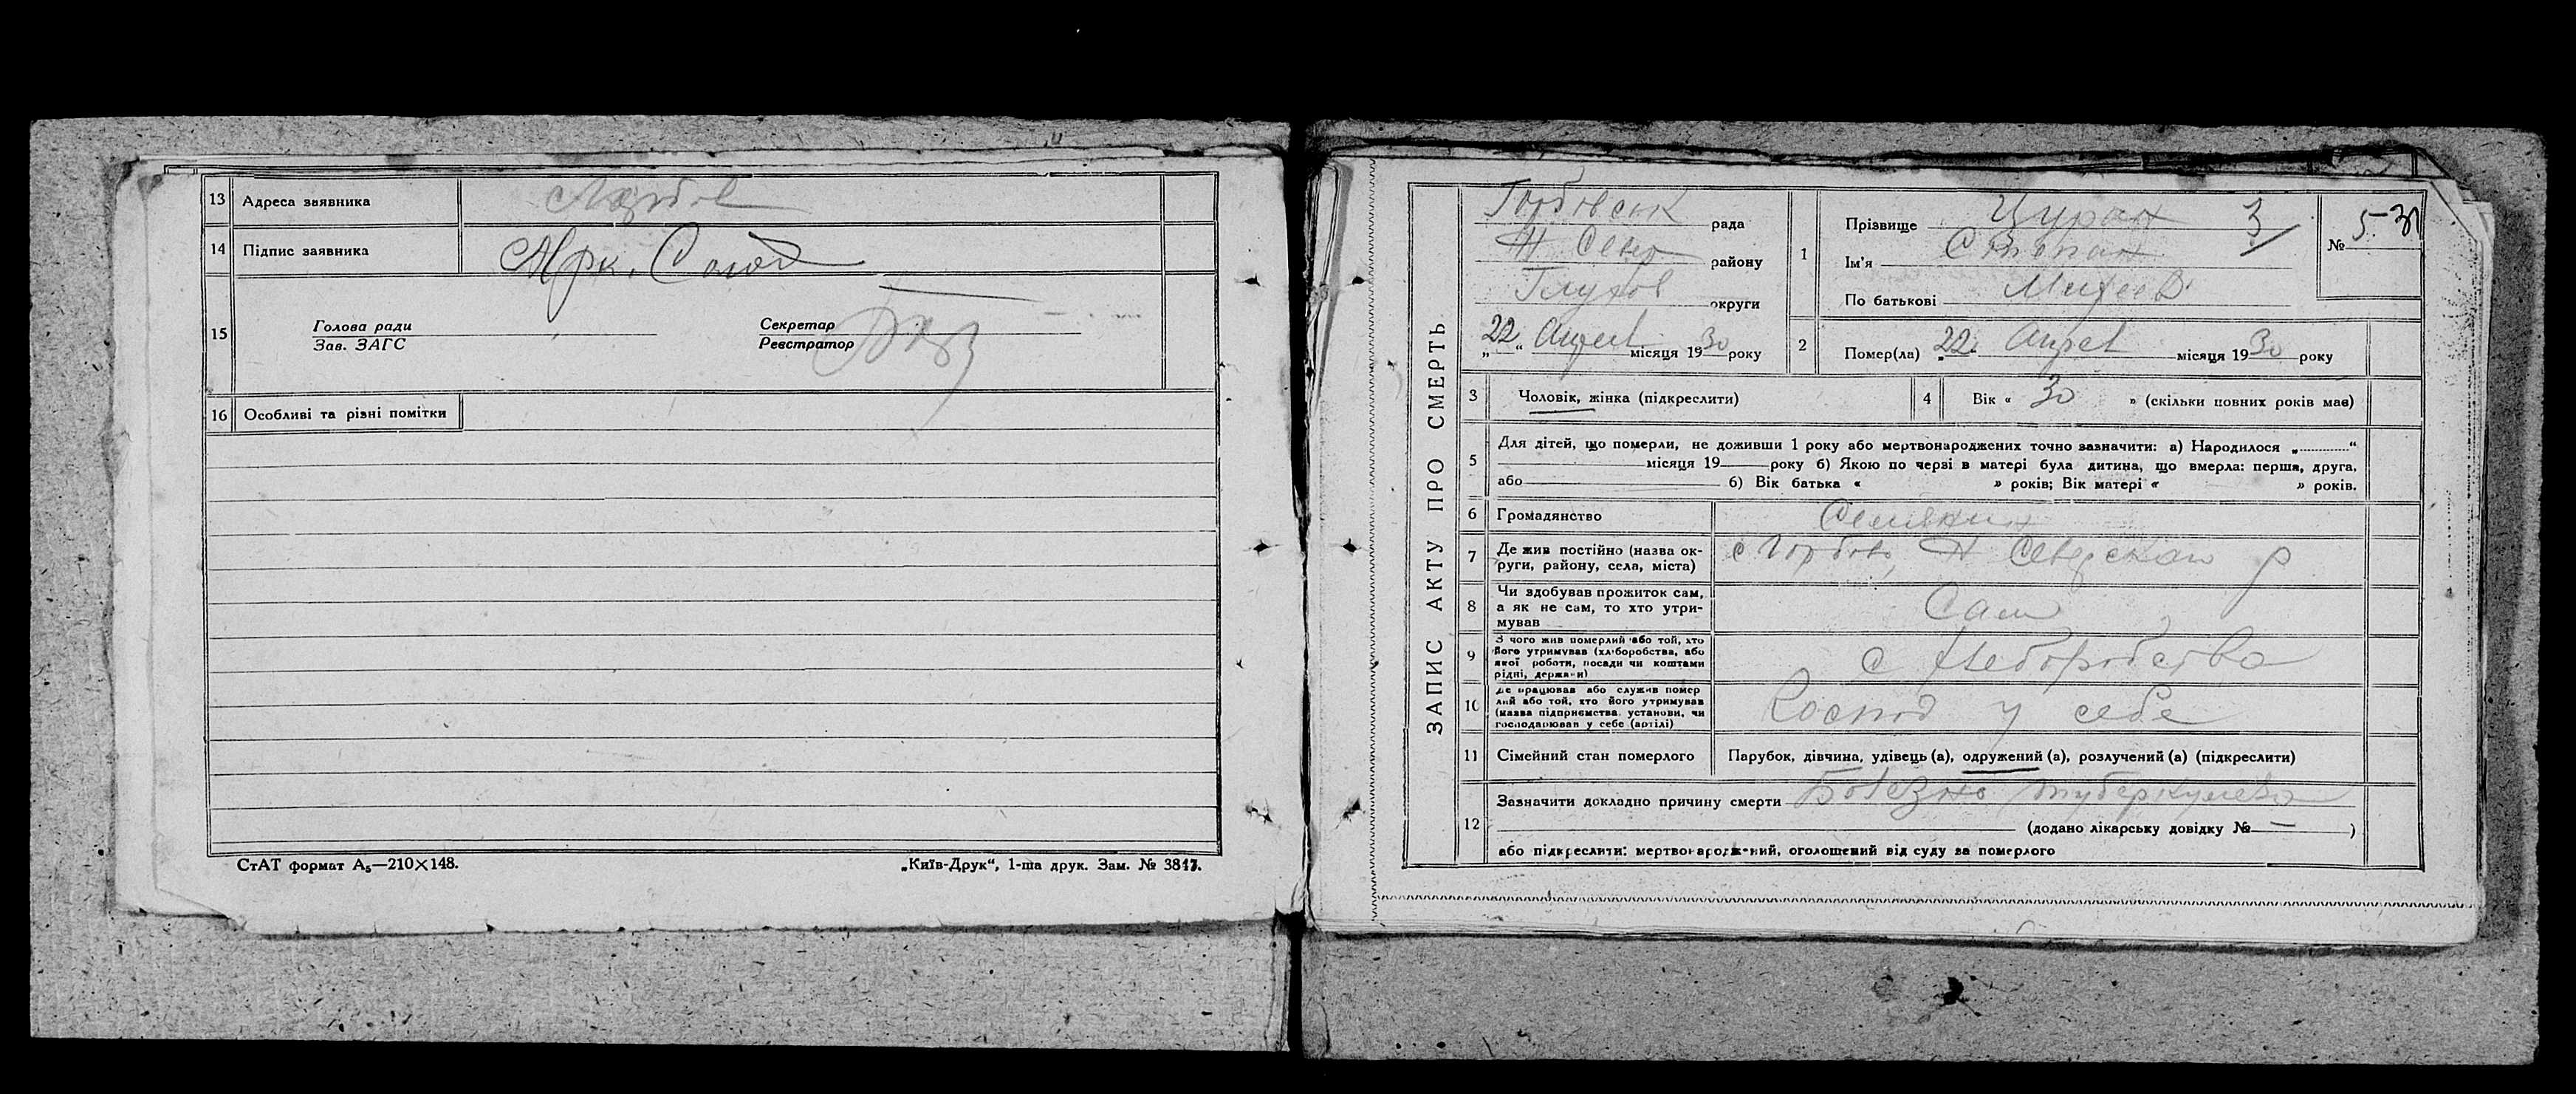 13 Адреса заявника
14 Підпис заявника
15 Голова ради
Зав. ЗАГС
Секретар
Реєстратор
16 Особливі та різні помітки
СтАТ формат А₅—210×148.
„Київ-Друк“, 1-ша друк. Зам. № 3847.
ЗАПИС АКТУ ПРО СМЕРТЬ
Горбовск рада
Н Север району
Глухов округи
„22“ Апрел місяця 1930 року
1 Прізвище Цуран 3
Ім'я Степан
По батькові
№ 5
2 Помер(ла) „22“ Апрел місяця 1930 року
3 Чоловік, жінка (підкреслити)
4 Вік « 30 » (скільки повних років має)
5 Для дітей, що померли, не доживши 1 року або мертвонароджених точно зазначити: а) Народилося „ “
місяця 19 року б) Якою по черзі в матері була дитина, що вмерла: перша, друга,
або б) Вік батька « » років; Вік матері « » років.
6 Громадянство
7 Де жив постійно (назва ок-
руги, району, села, міста) с Горбово, Н Северского р
8 Чи здобував прожиток сам,
а як не сам, то хто утри-
мував Сам
9 З чого жив померлий або той, хто
його утримував (хліборобства, або
якої роботи, посади чи коштами
рідні, держави) с хлеборобства
10 Де працював або служив помер
лий або той, хто його утримував
(назва підприємства, установи, чи
господарював у себе (артілі) Господ у себе
11 Сімейний стан померлого Парубок, дівчина, удівець (а), одружений (а), розлучений (а) (підкреслити)
12 Зазначити докладно причину смерти Болезнь туберкулеза
(додано лікарську довідку № — )
або підкреслити: мертвонароджений, оголошений від суду за померлого